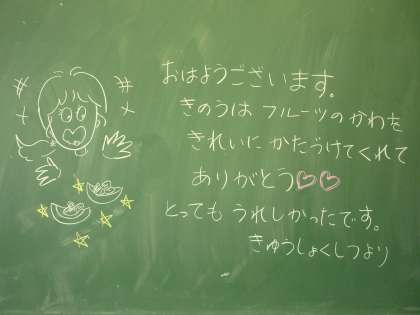 おはようございます。
きのうは フルーツのかわを
きれいに かたづけてくれて
ありがとう♡♡
とっても うれしかったです。
きゅうしょくしつより